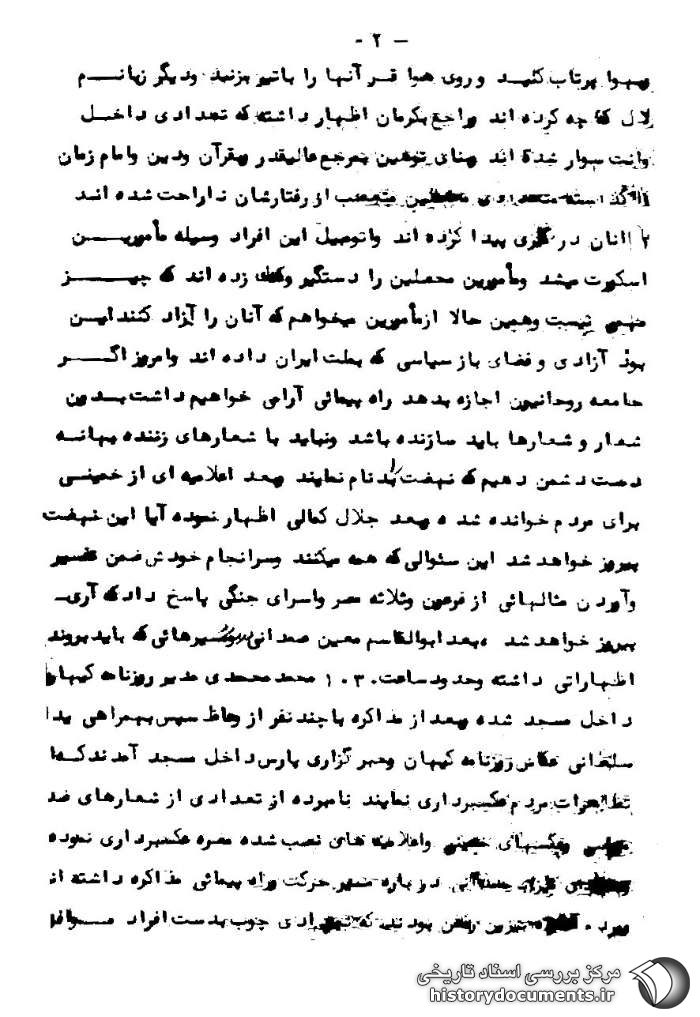 - ۲ -
بهوا پرتاب کنید و روی هوا قرآنها را باتیر بزنید ودیگر زبانم
لال که چه کرده اند وراجع بکرمان اظهار داشته که تعدادی داخل
وانت سوار شده اند وبنای توهین بمرجع عالیقدر وقرآن ودین وامام زمان
متعصب از رفتارشان ناراحت شده اند
آنان درگیری پیدا کرده اند واتومبیل این افراد وسیله مأمورین
اسکورت میشد ومأمورین محصلین را دستگیر وکتک زده اند که چیز
مهمی نیست وهمین حالا ازمأمورین میخواهم که آنان را آزاد کنند این
بود آزادی و فضای باز سیاسی که بملت ایران داده اند وامروز اگر
جامعه روحانیون اجازه بدهد راه پیمائی آرامی خواهیم داشت بدون
شعار و شعارها باید سازنده باشد ونباید با شعارهای زننده بهانه
دست دشمن دهیم که نهضت را بدنام نمایند وبعد اعلامیه ای از خمینی
برای مردم خوانده شد ه وبعد جلال کمالی اظهار نموده آیا این نهضت
پیروز خواهد شد این سئوالی که همه میکنند وسرانجام خودش ضمن تفسیر
وآوردن مثالهائی از فرعون وثلاثه مصر واسرای جنگی پاسخ داد که آری
پیروز خواهد شد ،بعد ابوالقاسم معین صمدانی مسیرهائی که باید بروند
اظهاراتی داشته وحدود ساعت ۱۰۳۰ محمد محمدی مدیر روزنامه کیهان
داخل مسجد شده وبعد از مذاکره با چند نفر از وعاظ سپس بهمراهی یدا
سلطانی عکاس روزنامه کیهان وخبرگزاری پارس داخل مسجد آمدند که از
تظاهرات مردم عکسبرداری نمایند نامبرده از تعدادی از شعارهای ضد
وعکسهای خمینی واعلامیه های نصب شده وغیره عکسبرداری نموده
درباره مسیر حرکت وراه پیمائی مذاکره داشته اند
بودند که تعدادی چوب بدست افراد
مرکز بررسی اسناد تاریخی
historydocuments.ir